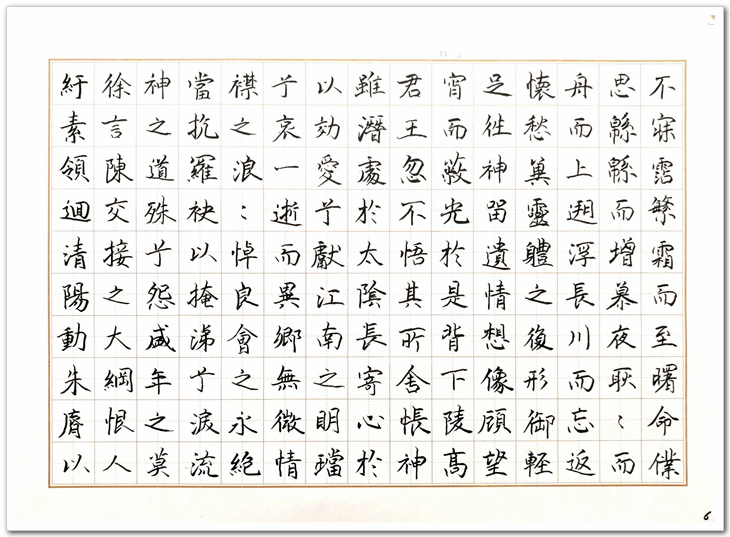 紆素領迴清陽動朱脣以
徐言陳交接之大綱恨人
神之道殊兮怨盛年之莫
當抗羅袂以掩涕兮淚流
襟之浪〻悼良會之永絕
兮哀一逝而異鄉無微情
以効愛兮獻江南之明璫
雖潛處於太陰長寄心於
君王忽不悟其所舍悵神
宵而蔽光於是背下陵高
足往神留遺情想像顧望
懷愁冀靈軆之復形御輕
舟而上遡浮長川而忘返
思緜緜而增慕夜耿〻而
不寐霑繁霜而至曙命僕
6